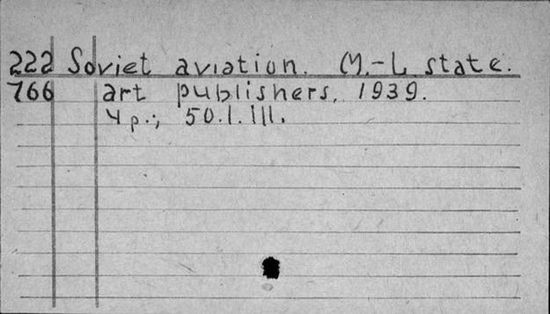 222 Soviet aviation. M.-L state.
766 art publishers, 1939.
4 p., 50.l.ill.